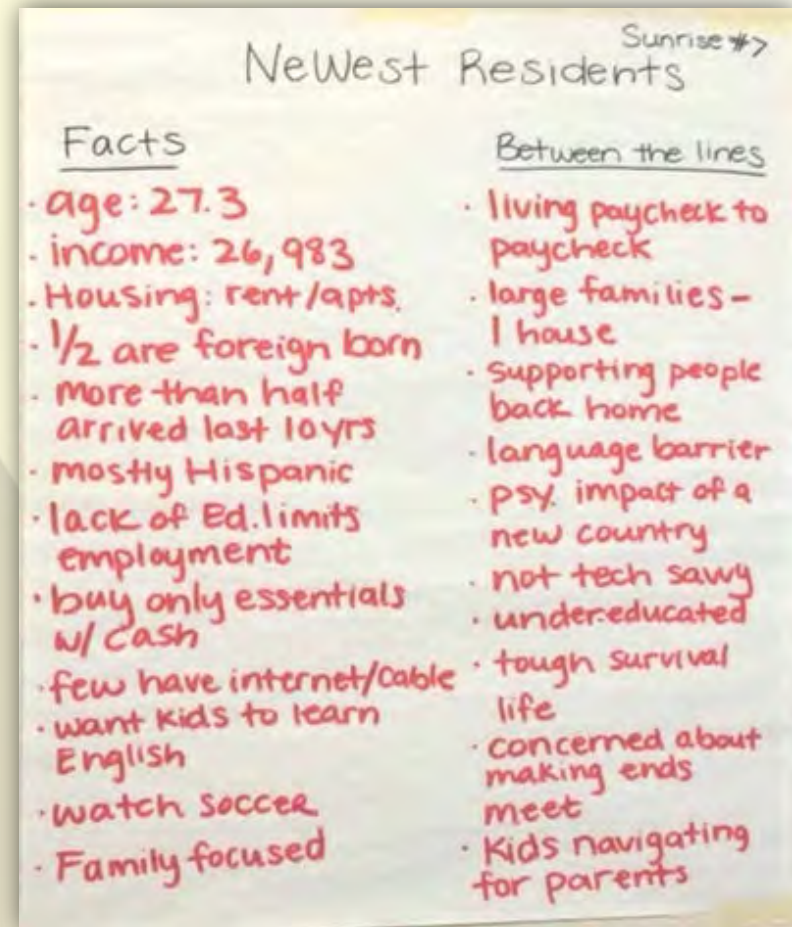 Sunrise #7
Newest Residents
Facts
· age: 27.3
· income: 26,983
· Housing: rent/apts.
· 1/2 are foreign born
· more than half
arrived last 10yrs
· mostly Hispanic
· lack of Ed. limits
employment
· buy only essentials
w/ cash
· few have internet/cable
· want kids to learn
English
· watch soccer
· Family focused
Between the lines
· living paycheck to
paycheck
· large families -
1 house
· supporting people
back home
· language barrier
· psy. impact of a
new country
· not tech savvy
· undereducated
· tough survival
life
· concerned about
making ends
meet
· Kids navigating
for parents